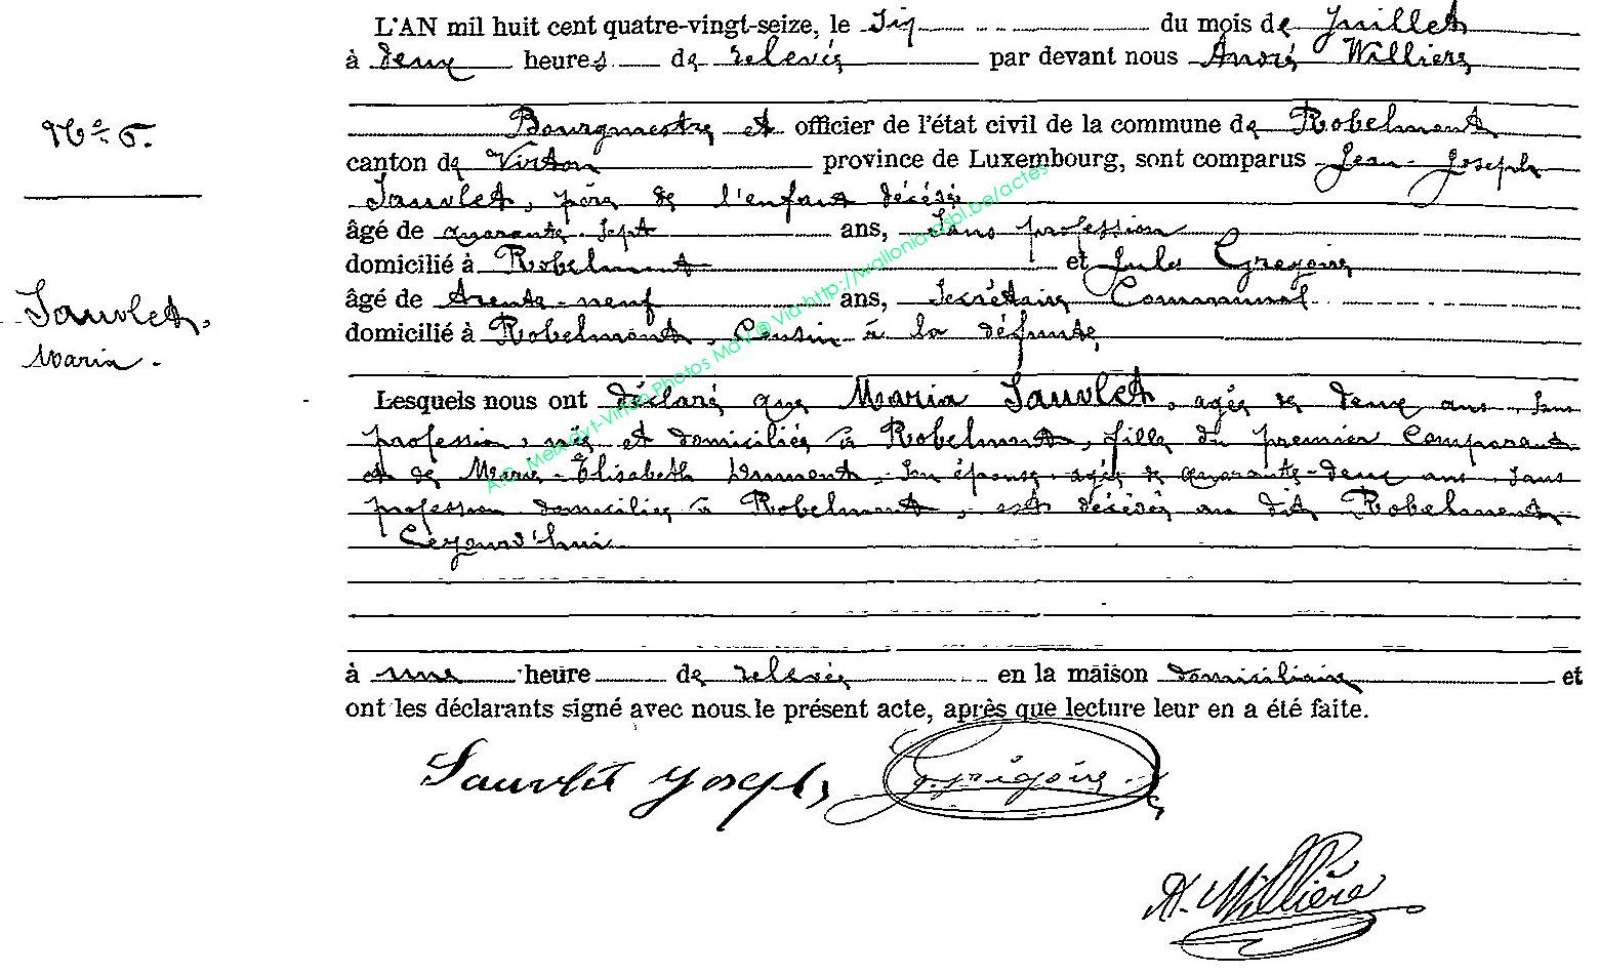 L'AN mil huit cent quatre-vingt-seize, le six du mois de Juillet
à deux heures de relevée par devant nous André Willière
Bourgmestre et officier de l'état civil de la commune de Robelmont
N° 6.
canton de Virton province de Luxembourg, sont comparus Jean-Joseph
Sauvlet, père de l'enfant décédé
âgé de quarante-sept ans, sans profession
domicilié à Robelmont et Jules Grégoire
âgé de trente-neuf ans, Secrétaire Communal
Sauvlet,
domicilié à Robelmont, Cousin à la défunte,
Maria.
Lesquels nous ont déclaré que Maria Sauvlet, agée de deux ans, sans
profession, née et domiciliée à Robelmont, fille du premier Comparant
et de Marie-Élisabeth son épouse, agée de quarante-deux ans sans
profession domiciliée à Robelmont, est décédée au dit Robelmont
Cejourd'hui
à une heure de relevée en la maison domiciliaire et
ont les déclarants signé avec nous le présent acte, après que lecture leur en a été faite.
Sauvlet Joseph Grégoire
A. Willière
A.C. Meix-dvt-Virton Photos MaV @ Via http://wallonia-asbl.be/actes